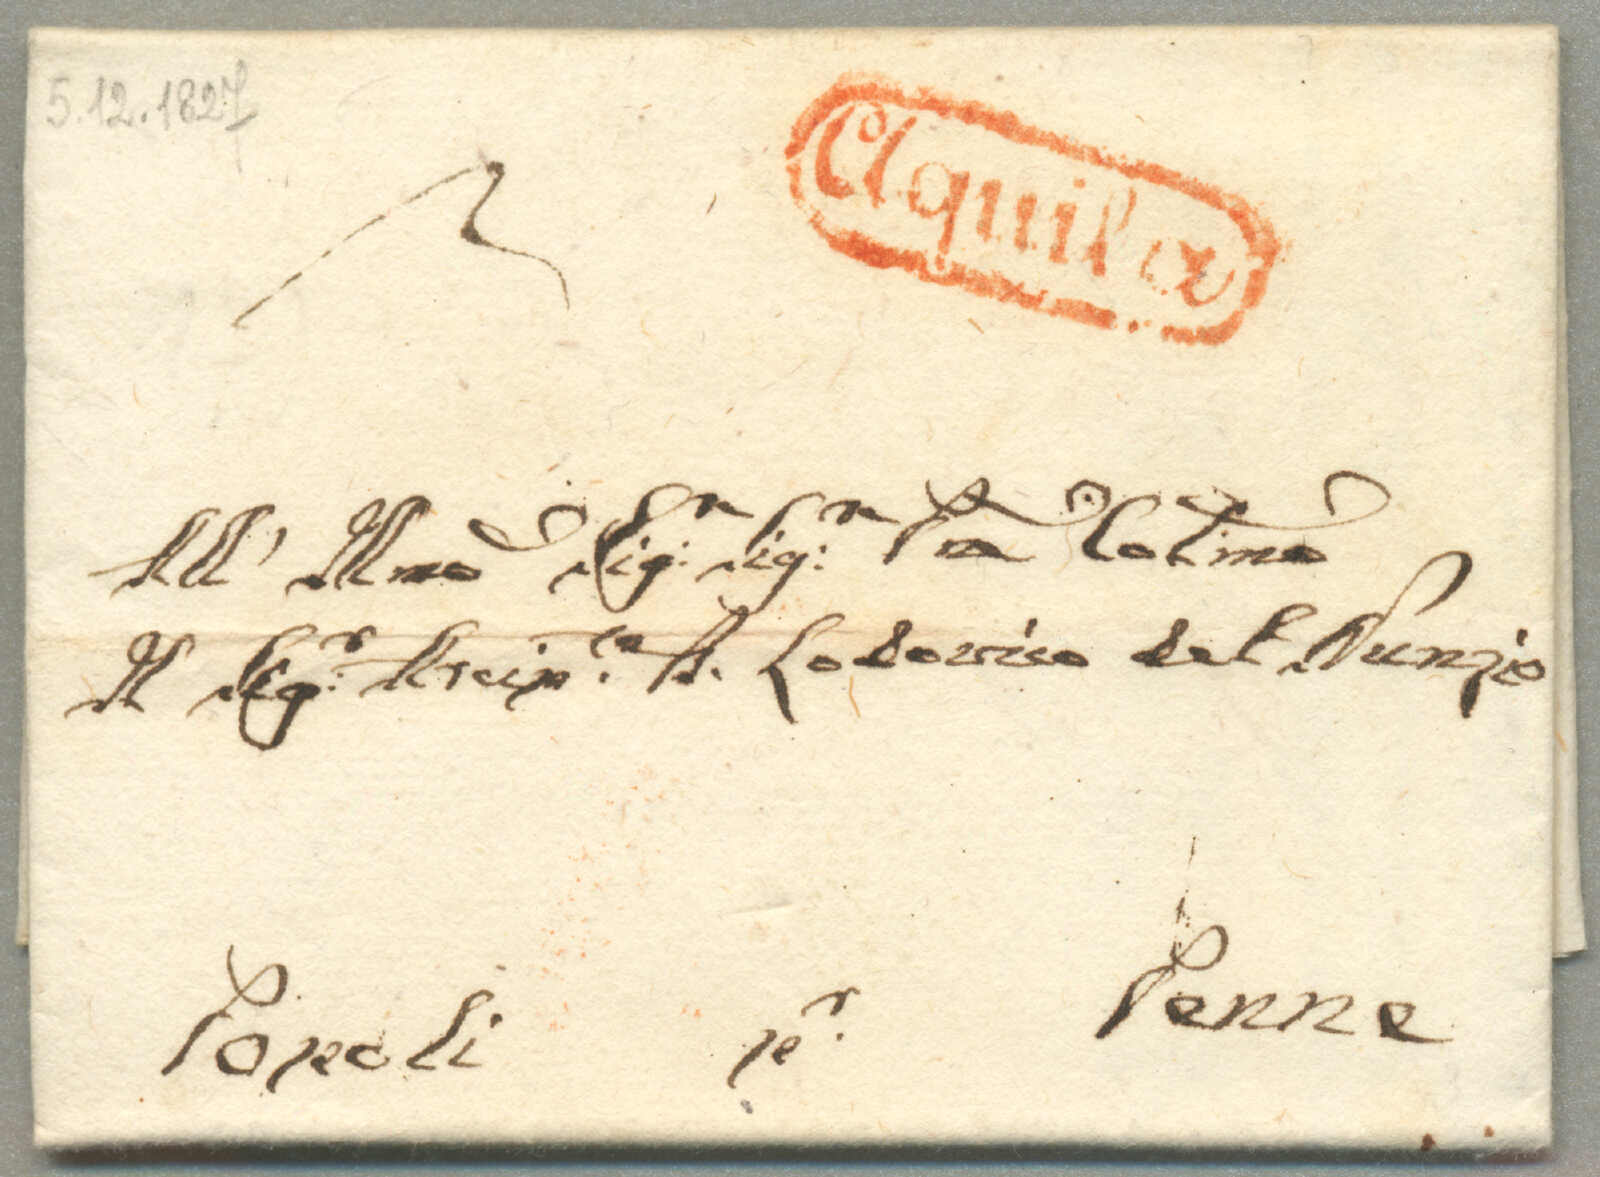 5.12.1827
Aquila
2
All' Illmo Sig:r Sig:r Pne Colmo
Il Sig:r Arcip:te D. Lodovico del Nunzio
Popoli pr. Penne